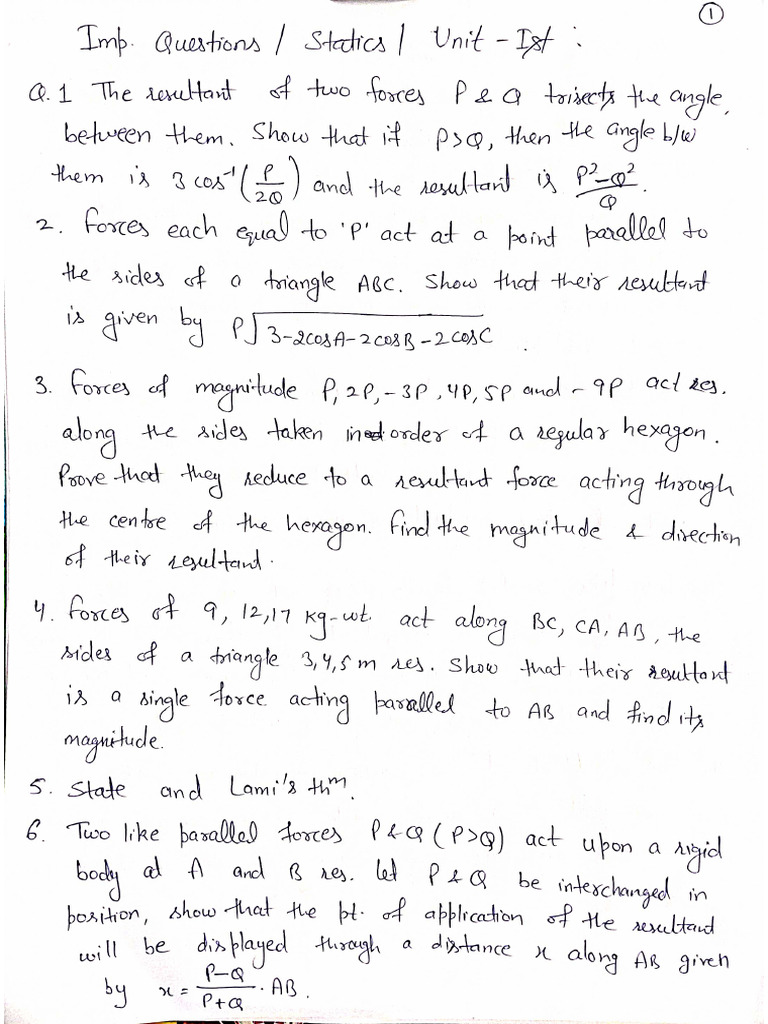 1
Imp. Questions / Statics / Unit - Ist :
Q.1 The resultant of two forces P & Q trisects the angle
between them. Show that if P>Q, then the angle b/w
them is 3 cos⁻¹(P/2Q) and the resultant is P²-Q²/Q.
2. Forces each equal to 'P' act at a point parallel to
the sides of a triangle ABC. Show that their resultant
is given by P√3-2cosA-2cosB-2cosC.
3. Forces of magnitude P, 2P, -3P, 4P, 5P and -9P act res.
along the sides taken in order of a regular hexagon.
Prove that they reduce to a resultant force acting through
the centre of the hexagon. Find the magnitude & direction
of their resultant.
4. Forces of 9, 12, 17 kg-wt. act along BC, CA, AB, the
sides of a triangle 3,4,5 m res. Show that their resultant
is a single force acting parallel to AB and find its
magnitude.
5. State and Lami's thm.
6. Two like parallel forces P & Q (P>Q) act upon a rigid
body at A and B res. let P & Q be interchanged in
position, show that the pt. of application of the resultant
will be displayed through a distance x along AB given
by x = P-Q/P+Q . AB.